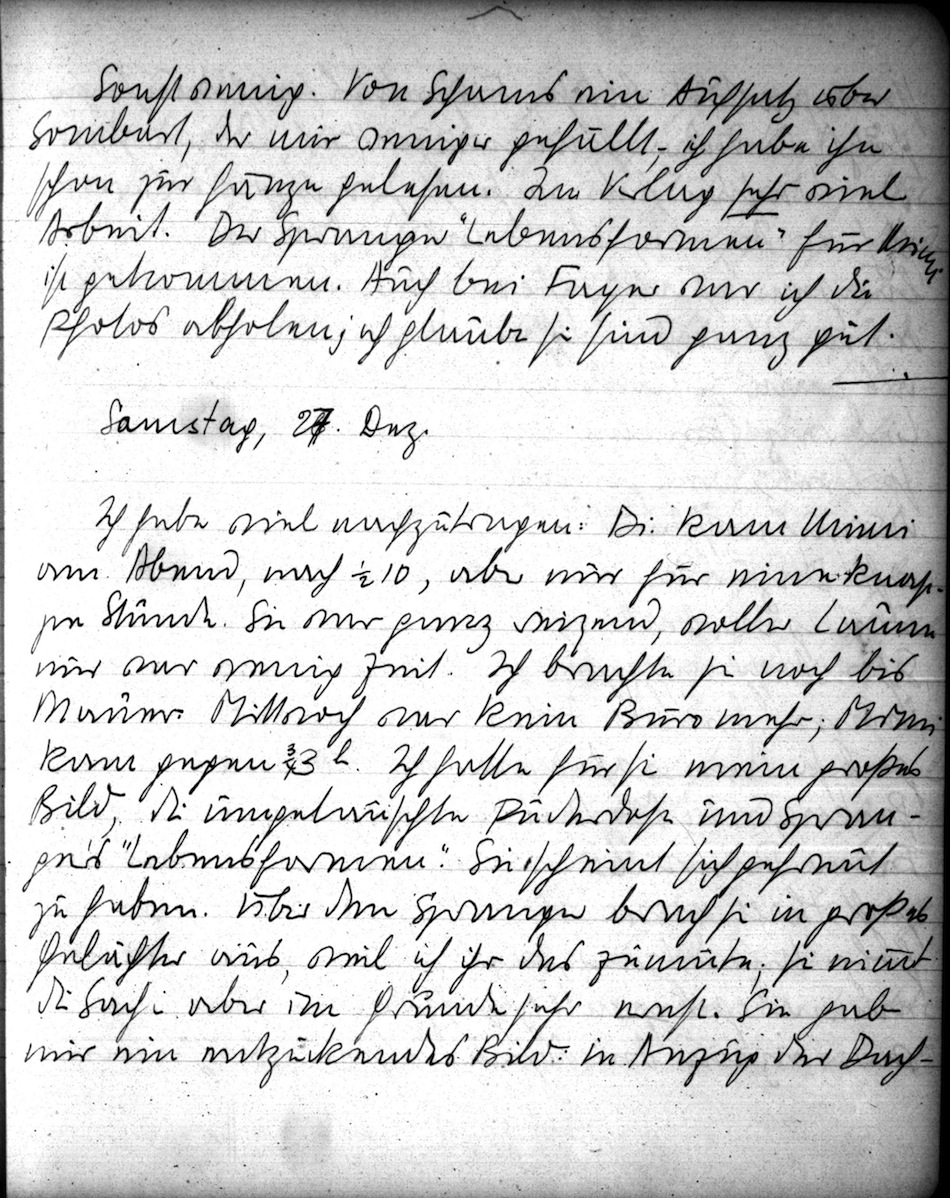 Sonst wenig. Von Schams ein Aufsatz über
Sombart, der mir weniger gefällt, ich habe ihn
schon zur Gänze gelesen. Im Verlag sehr viel
Arbeit. Der Spranger "Lebensformen" für Mimi
ist gekommen. Auch bei Fayer war ich die
Photos abholen; ich glaube sie sind ganz gut.
Samstag, 27. Dez.
Ich habe viel nachzutragen: Di. kam Mimi
am Abend, nach ½ 10, aber nur für eine knap-
pe Stunde. Sie war ganz reizend, voller Laune
nur war wenig Zeit. Ich brachte sie noch bis
Mauer. Mittwoch war kein Büro mehr; Mimi
kam gegen ¾3 h. Ich hatte für sie mein großes
Bild, die umgetauschte Puderdose und Spran-
ger's "Lebensformen". Sie scheint sich gefreut
zu haben. Über den Spranger brach sie in großes
Gelächter aus, weil ich ihr das zumute; sie nimmt
die Sache aber im Grunde sehr ernst. Sie gab
mir ein entzückendes Bild: im Anzug der Dach-